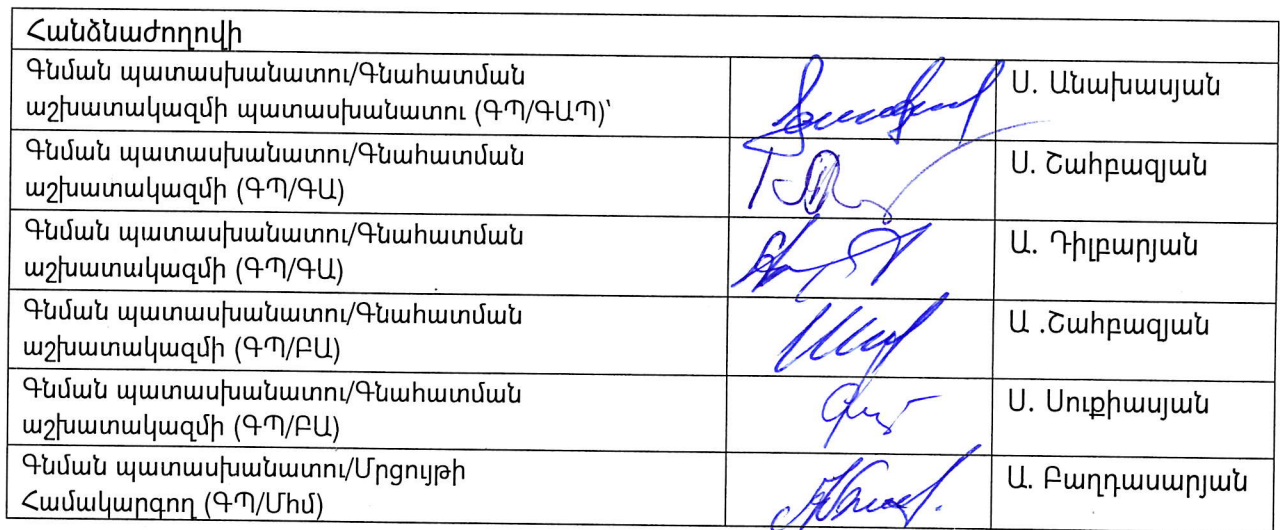 Հանձնաժողովի
Գնման պատասխանատու/Գնահատման
աշխատակազմի պատասխանատու (ԳՊ/ԳԱՊ)՝
Ս. Անախասյան
Գնման պատասխանատու/Գնահատման
աշխատակազմի (ԳՊ/ԳԱ)
Ս. Շահբազյան
Գնման պատասխանատու/Գնահատման
աշխատակազմի (ԳՊ/ԳԱ)
Ա. Դիլբարյան
Գնման պատասխանատու/Գնահատման
աշխատակազմի (ԳՊ/ԲԱ)
Ա .Շահբազյան
Գնման պատասխանատու/Գնահատման
աշխատակազմի (ԳՊ/ԲԱ)
Ս. Սուքիասյան
Գնման պատասխանատու/Մրցույթի
Համակարգող (ԳՊ/Մհմ)
Ա. Բաղդասարյան